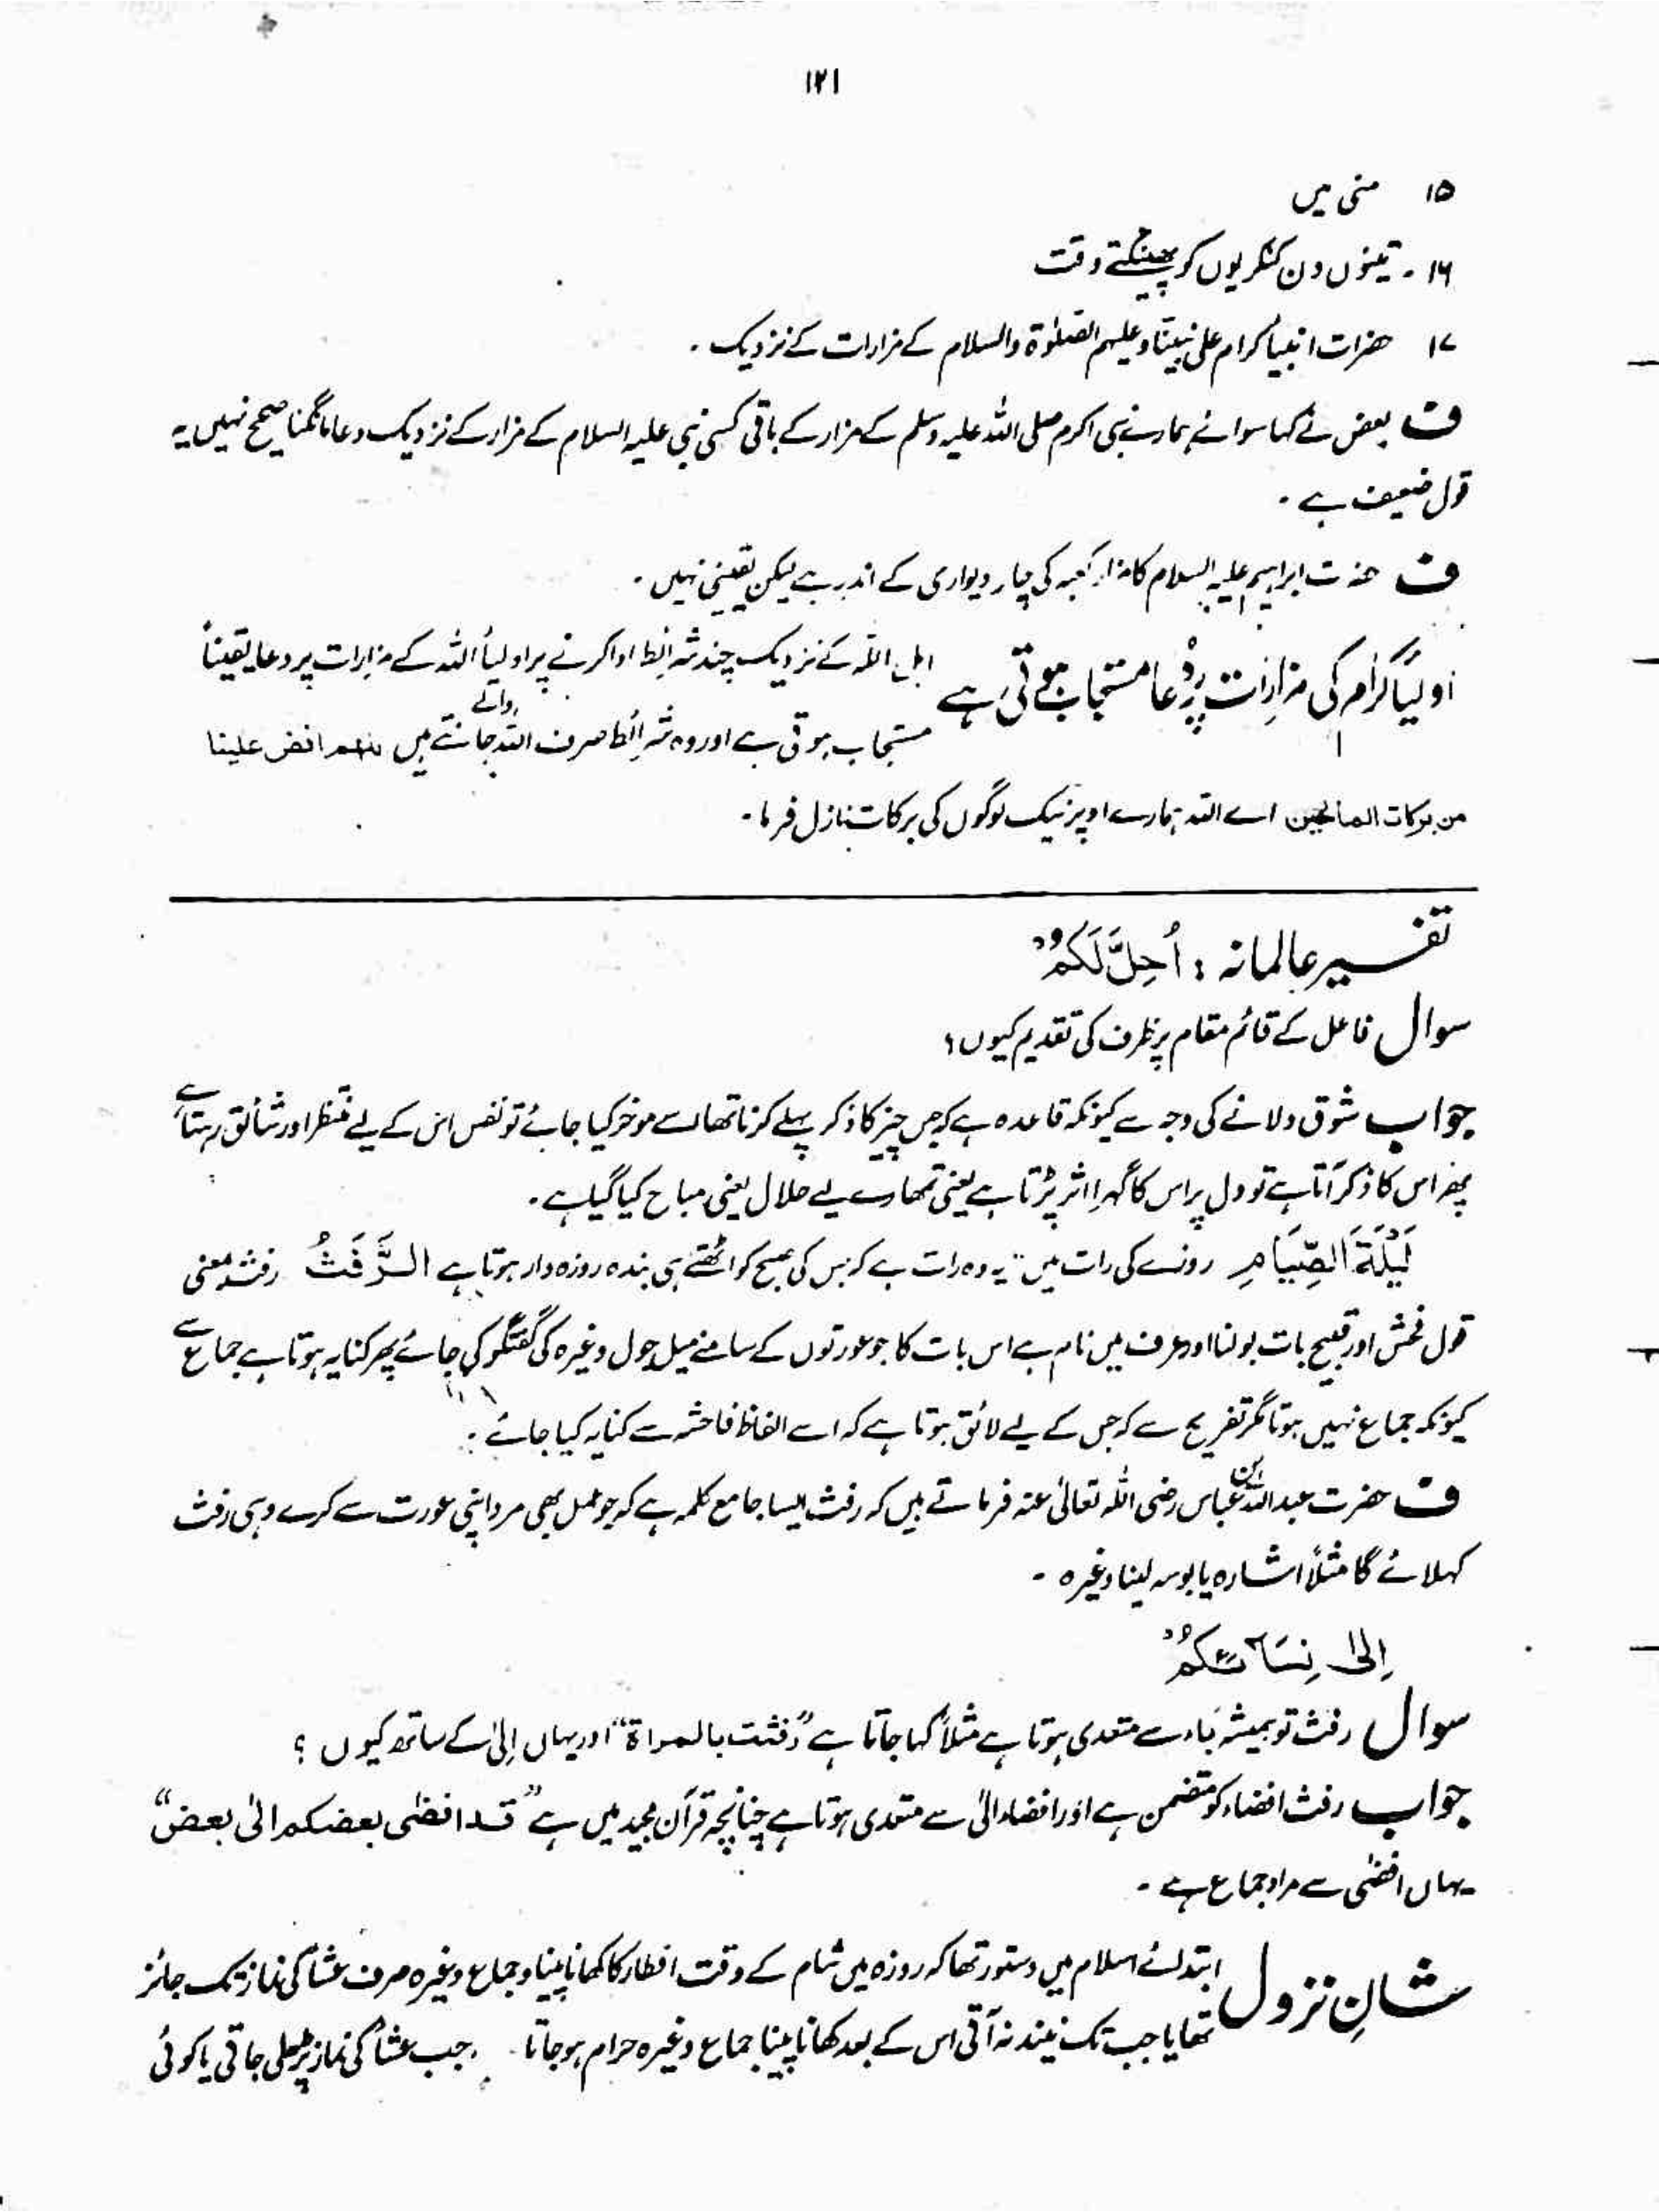 ۱۲۱
۱۵ منیٰ میں
۱۶ ۔ تینوں دن کنکریوں کو پھینکتے وقت
۱۷ حضرات انبیأ کرام علیٰ نبینا وعلیہم الصلوٰۃ والسلام کے مزارات کے نزدیک ۔
ف بعض نے کہا سوائے ہمارے نبی اکرم صلی اللہ علیہ وسلم کے مزار کے باقی کسی نبی علیہ السلام کے مزار کے نزدیک دعا مانگنا صحیح نہیں یہ
قول ضعیف ہے ۔
ف حضرت ابراہیم علیہ السلام کا مزار کعبہ کی چار دیواری کے اندر ہے لیکن یقینی نہیں ۔
اولیأ کرام کی مزارات پر دعا مستجاب ہوتی ہے اہل اللہ کے نزدیک چند شرائط ادا کرنے پر اولیأ اللہ کے مزارات پر دعا یقیناً
مستجاب ہوتی ہے اور وہ شرائط صرف اللہ والے جانتے ہیں افض علینا
من برکات الصالحین اے اللہ ہمارے اوپر نیک لوگوں کی برکات نازل فرما ۔
تفسیر عالمانہ : اُحِلَّ لَكُمْ
سوال فاعل کے قائم مقام پر ظرف کی تقدیم کیوں ؟
جواب شوق دلانے کی وجہ سے کیونکہ قاعدہ ہے کہ جس چیز کا ذکر پہلے کرنا تھا اسے موخر کیا جائے تو نفس اس کے لیے منتظر اور شائق رہتا ہے
پھر اس کا ذکر آتا ہے تو دل پر اس کا گہرا اثر پڑتا ہے یعنی تمہارے لیے حلال یعنی مباح کیا گیا ہے ۔
لَيْلَةَ الصِّيَامِ روزے کی رات میں یہ وہ رات ہے کہ جس کی صبح کو اٹھتے ہی بندہ روزہ دار ہوتا ہے الرَّفَثُ رفث بمعنی
قول فحش اور قبیح بات بولنا اور عرف میں نام ہے اس بات کا جو عورتوں کے سامنے میل جول وغیرہ کی گفتگو کی جائے پھر کنایہ ہوتا ہے جماع سے
کیونکہ جماع نہیں ہوتا مگر تفریح سے کہ جس کے لیے لائق ہوتا ہے کہ اسے الفاظ فاحشہ سے کنایہ کیا جائے ۔
ف حضرت عبداللہ بن عباس رضی اللہ تعالیٰ عنہ فرماتے ہیں کہ رفث ایسا جامع کلمہ ہے کہ جو عمل بھی مرد اپنی عورت سے کرے وہی رفث
کہلائے گا مثلاً اشارہ یا بوسہ لینا وغیرہ ۔
اِلٰى نِسَآئِكُمْ
سوال رفث تو ہمیشہ باء سے متعدی ہوتا ہے مثلاً کہا جاتا ہے ”رفثت بالمراۃ“ اور یہاں اِلیٰ کے ساتھ کیوں ؟
جواب رفث افضاء کو متضمن ہے اور افضاء الیٰ سے متعدی ہوتا ہے چنانچہ قرآن مجید میں ہے ”قد افضٰی بعضکم الیٰ بعض“
یہاں افضٰی سے مراد جماع ہے ۔
شانِ نزول ابتدائے اسلام میں دستور تھا کہ روزہ میں شام کے وقت افطار کا کھانا پینا و جماع وغیرہ صرف عشأ کی نماز تک جائز
تھا یا جب تک نیند نہ آتی اس کے بعد کھانا پینا جماع وغیرہ حرام ہو جاتا . جب عشأ کی نماز پڑھ لی جاتی یا کوئی